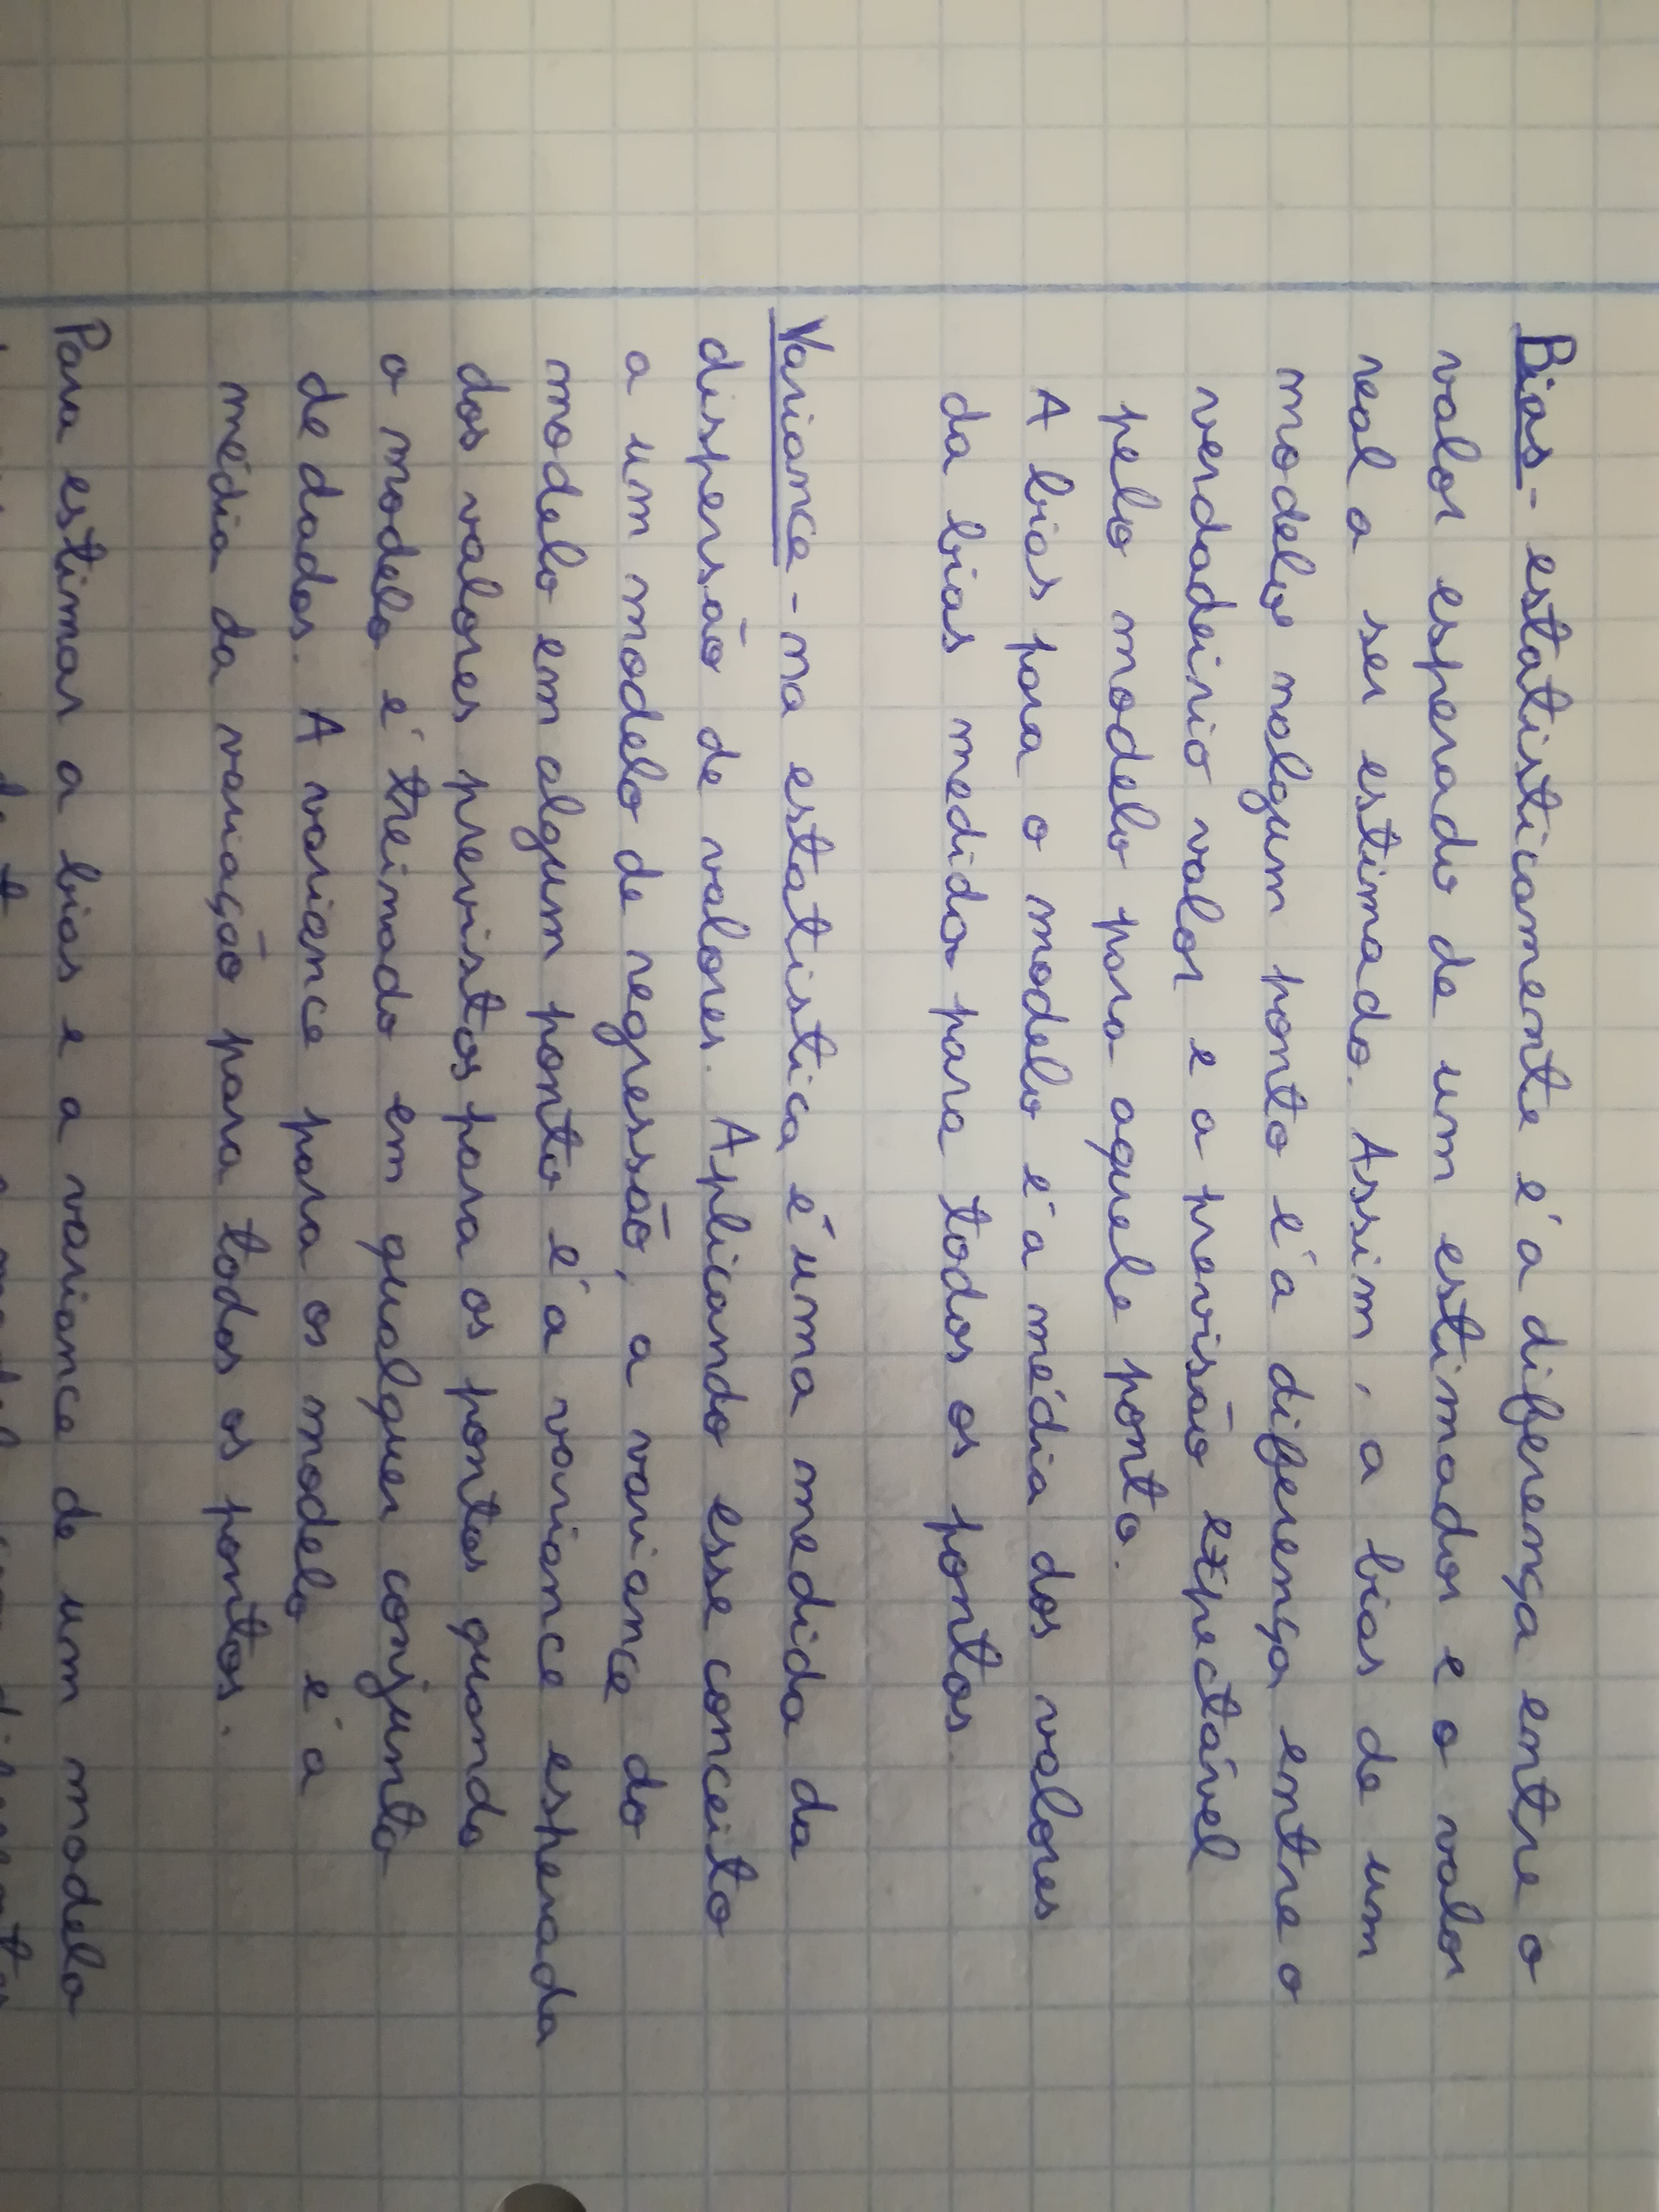 Bias - estatisticamente é a diferença entre o
valor esperado de um estimador e o valor
real a ser estimado. Assim, a bias de um
modelo nalgum ponto é a diferença entre o
verdadeirio valor e a previsão expectável
pelo modelo para aquele ponto.
A bias para o modelo é a média dos valores
da bias medida para todos os pontos.
Variance - na estatística é uma medida da
dispersão de valores. Aplicando esse conceito
a um modelo de regressão, a variance do
modelo em algum ponto é a variance esperada
dos valores previstos para os pontos quando
o modelo é treinado em qualquer conjunto
de dados. A variance para os modelo é a
média da variação para todos os pontos.
Para estimar a bias e a variance de um modelo